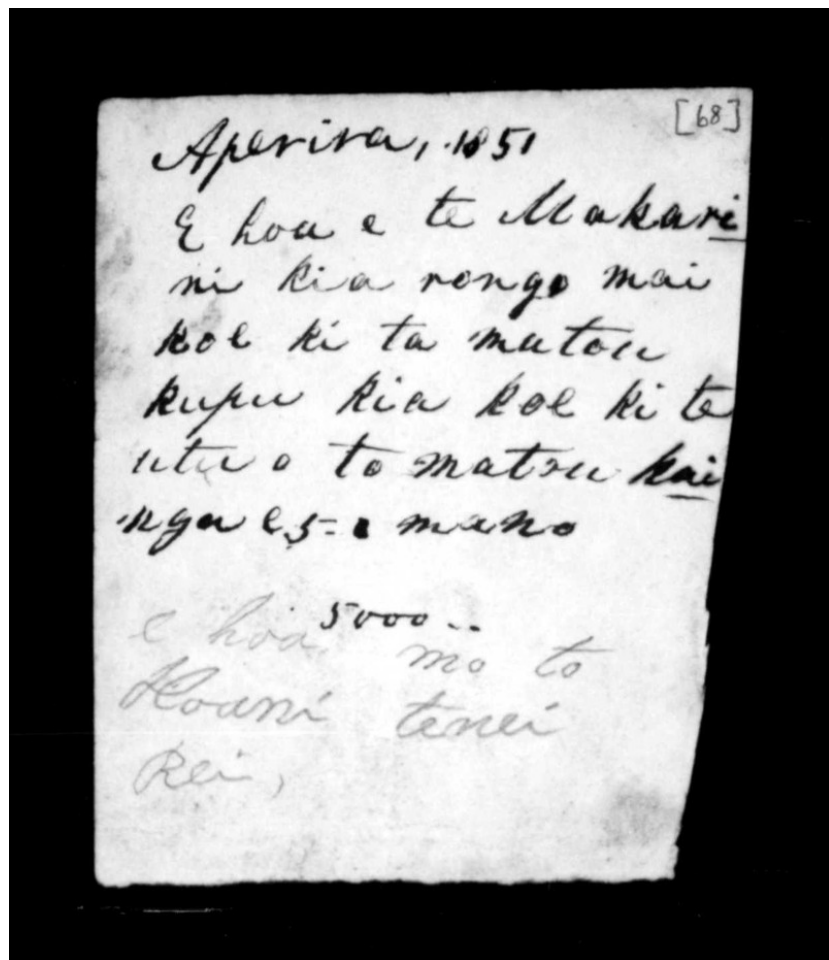 [68]
Aperira, 1851
E hoa e te Makari
ni kia rongo mai
koe ki ta matou
kupu kia koe ki te
utu o to matou kai
nga e 5= mano
5000..
e hoa mo to
Hoani tenei
Rei,